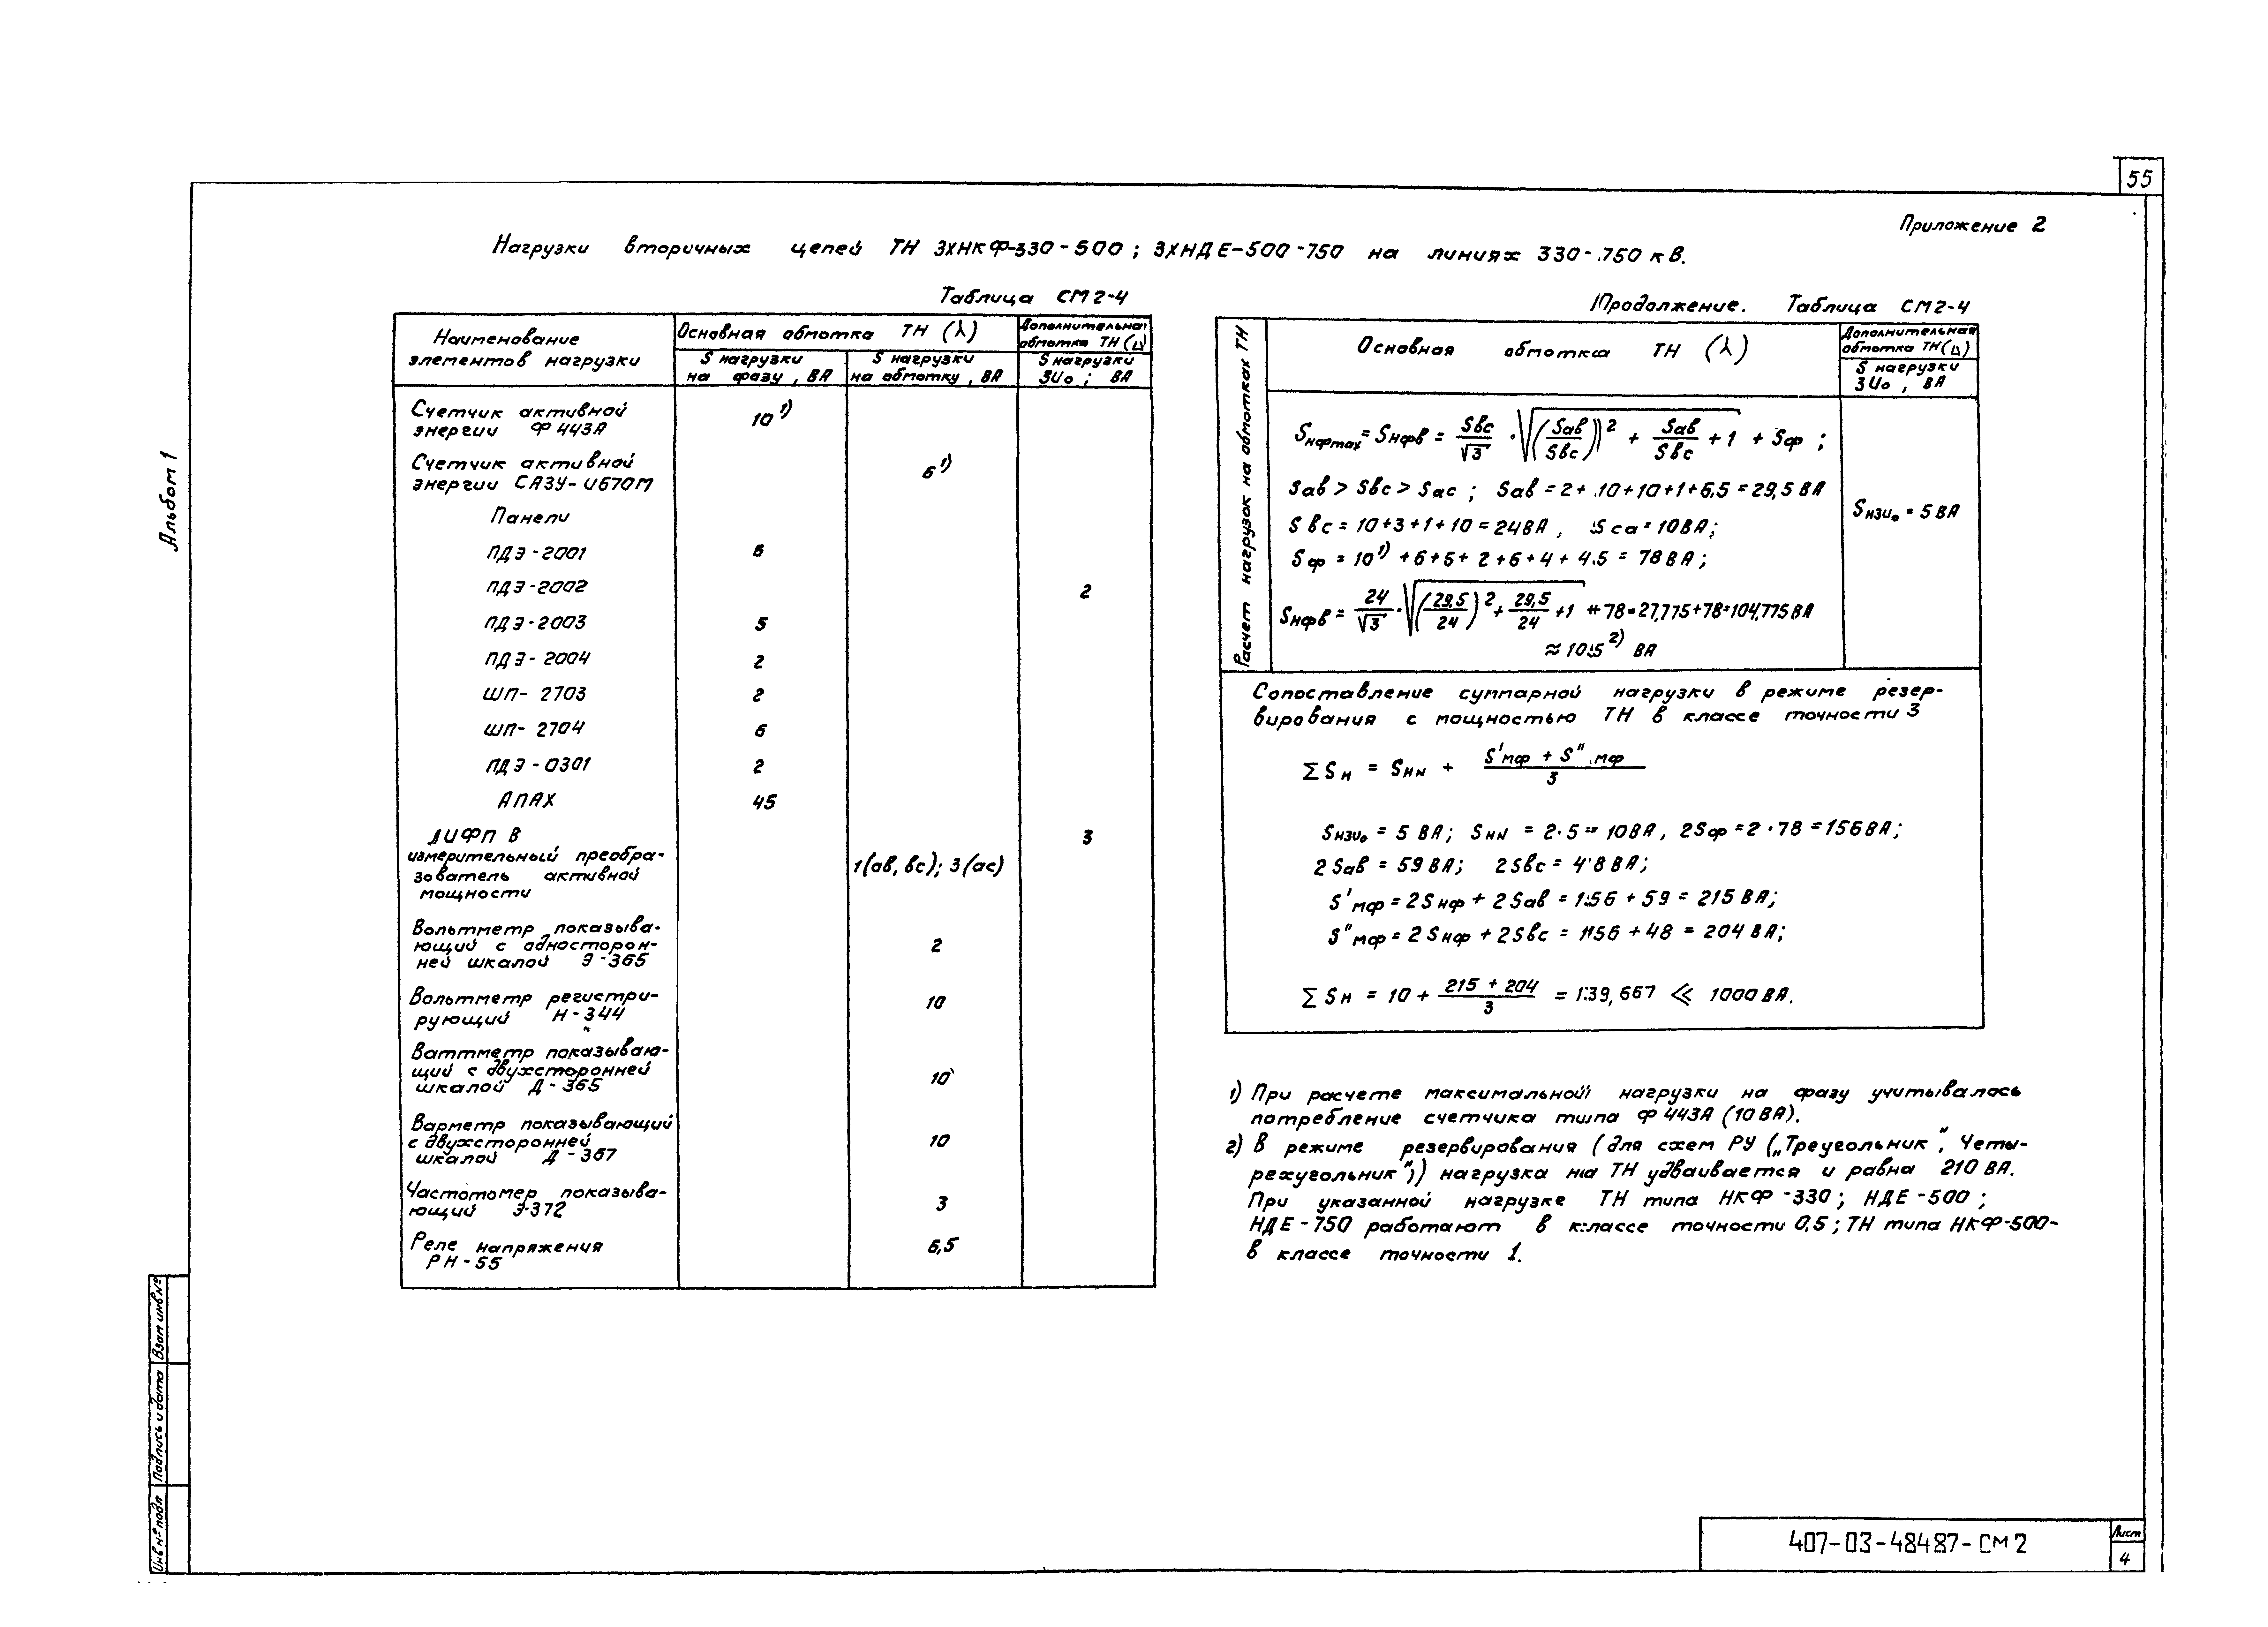 55
Приложение 2
Нагрузки вторичных цепей ТН 3ХНКФ-330-500; 3ХНДЕ-500-750 на линиях 330-750 кВ.
Альбом 1
Таблица СМ2-4
Наименование элементов нагрузки
Основная обмотка ТН (⅄)
Дополнительная обмотка ТН (△)
S нагрузки на фазу, ВА
S нагрузки на обмотку, ВА
S нагрузки 3Uо; ВА
Счетчик активной
энергии Ф 443А 10 1)
Счетчик активной
энергии САЗУ-И670М 6 1)
Панели
ПДЭ-2001 6
ПДЭ-2002 2
ПДЭ-2003 5
ПДЭ-2004 2
ШП-2703 2
ШП-2704 6
ПДЭ-0301 2
АПАХ 45
ЛИФП В 3
измерительный преобра-
зователь активной 1(ав, вс); 3(ас)
мощности
Вольтметр показыва-
ющий с односторон- 2
ней шкалой Э-365
Вольтметр регистри- 10
рующий Н-344
Ваттметр показываю-
щий с двухсторонней 10
шкалой Д-365
Варметр показывающий
с двухсторонней 10
шкалой Д-367
Частотомер показыва-
ющий Э-372 3
Реле напряжения 6,5
РН-55
Продолжение. Таблица СМ2-4
Расчет нагрузок на обмотках ТН
Основная обмотка ТН (⅄)
Дополнительная обмотка ТН (△)
S нагрузки 3Uо, ВА
Sнфmax = Sнфв = Sвс/√3 · √((Sав/Sвс)² + Sав/Sвс + 1) + Sф;
Sав > Sвс > Sас; Sав = 2+10+10+1+6,5 = 29,5 ВА
Sвс = 10+3+1+10 = 24ВА, Sса = 10ВА;
Sн3Uо = 5 ВА
Sф = 10 1) +6+5+2+6+4+45 = 78ВА;
Sнфв = 24/√3 · √((29,5/24)² + 29,5/24 + 1) + 78 = 27,775+78 = 104,775 ВА
≈ 105 2) ВА
Сопоставление суммарной нагрузки в режиме резер-
вирования с мощностью ТН в классе точности 3
ΣSн = SнN + (S'мф + S"мф)/3
Sн3Uо = 5 ВА; SнN = 2·5 = 10ВА, 2Sф = 2·78 = 156ВА;
2Sав = 59 ВА; 2Sвс = 48 ВА;
S'мф = 2Sнф + 2Sав = 156 + 59 = 215 ВА;
S"мф = 2Sнф + 2Sвс = 156 + 48 = 204 ВА;
ΣSн = 10 + (215 + 204)/3 = 139,667 ≪ 1000 ВА.
1) При расчете максимальной нагрузки на фазу учитывалось
потребление счетчика типа Ф 443А (10 ВА).
2) В режиме резервирования (для схем РУ („Треугольник", Четы-
рехугольник");) нагрузка на ТН удваивается и равна 210 ВА.
При указанной нагрузке ТН типа НКФ-330; НДЕ-500;
НДЕ-750 работают в классе точности 0,5; ТН типа НКФ-500-
в классе точности 1.
Взам инв №
Подпись и дата
Инв № подл
407-03-48487-СМ2
Лист
4